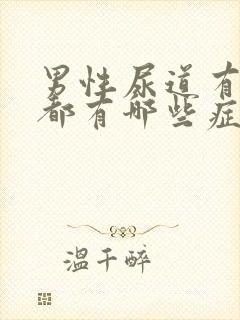 男性尿道有
都有哪些症
温千醉